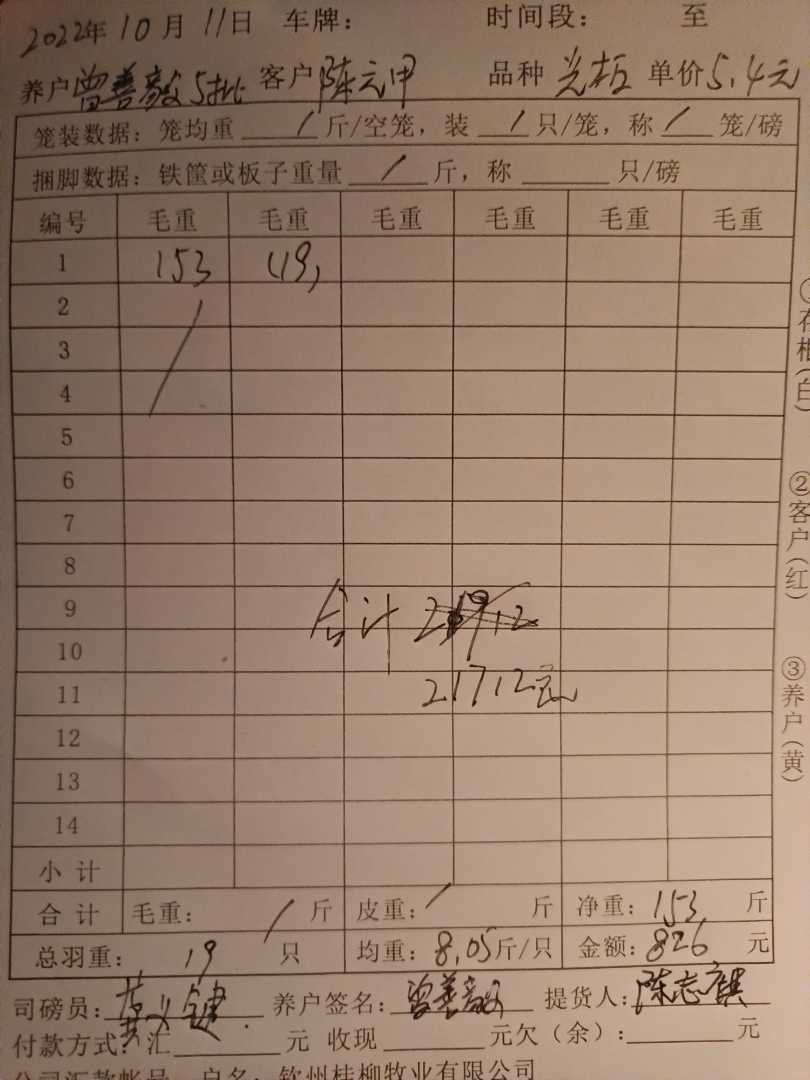 2022年10月11日 车牌: 时间段: 至
养户曾善毅5批 客户陈元甲 品种光板 单价5.4元
笼装数据: 笼均重 / 斤/空笼, 装 / 只/笼, 称 / 笼/磅
捆脚数据: 铁筐或板子重量 / 斤, 称 只/磅
编号 毛重 毛重 毛重 毛重 毛重 毛重
1 153 (19)
2
3
4
5
6
7
8
9
合计
10
11 21712元
12
13
14
小计
合计 毛重: / 斤 皮重: / 斤 净重: 153 斤
总羽重: 19 只 均重: 8.05斤/只 金额: 826 元
司磅员: 黄 键 养户签名: 曾善毅 提货人: 陈志麒
付款方式: 汇 元 收现 元欠(余): 元
公司汇款帐号 户名: 钦州桂柳牧业有限公司
①存根(白)
②客户(红)
③养户(黄)